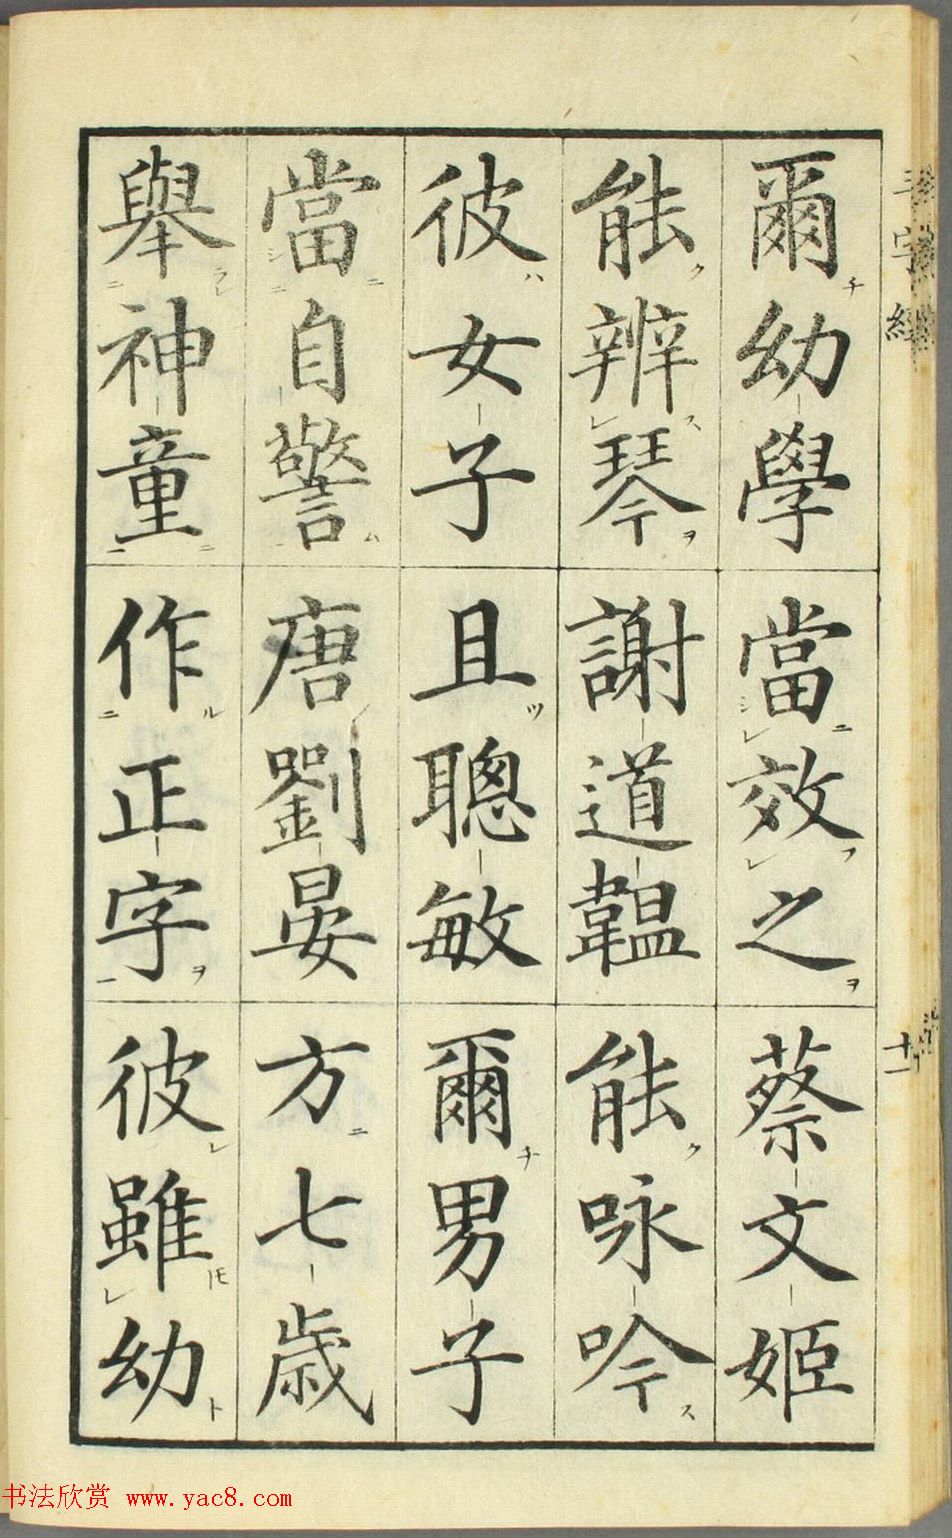 三字經
十一
爾幼學 當效之 蔡文姬
能辨琴 謝道韞 能咏吟
彼女子 且聰敏 爾男子
當自警 唐劉晏 方七歲
舉神童 作正字 彼雖幼
书法欣赏 www.yac8.com